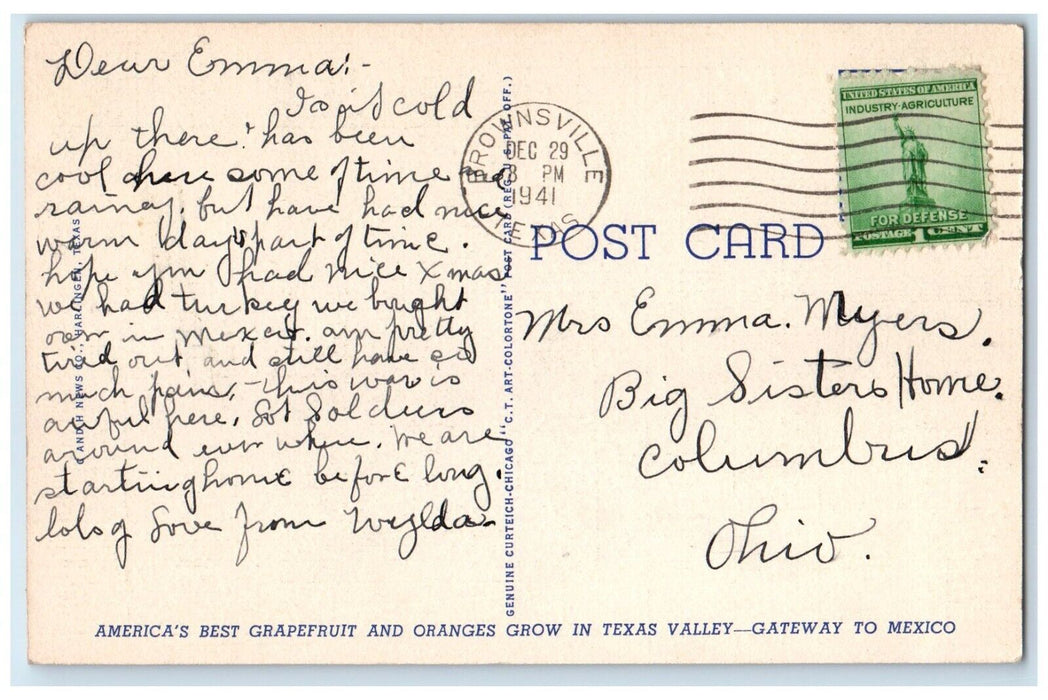 Dear Emma:-
Is it cold
up there? has been
cool here some of time and
rainey. but have had nice
warm days part of time.
hope you had nice Xmas
we had turkey we bought
over in Mexico. am pretty
tired out and still have so
much pain, - this war is
awful here, lot Soldiers
around every where. We are
starting home before long.
lots of Love from Wylda-
C AND H NEWS CO., HARLINGEN, TEXAS
GENUINE CURTEICH-CHICAGO "C.T. ART-COLORTONE" POST CARD (REG. U.S. PAT. OFF.)
BROWNSVILLE
DEC 29
3 PM
1941
TEXAS
UNITED STATES OF AMERICA
INDUSTRY·AGRICULTURE
FOR DEFENSE
POSTAGE 1 CENT
POST CARD
Mrs Emma. Myers.
Big Sisters Home.
Columbus.
Ohio.
AMERICA'S BEST GRAPEFRUIT AND ORANGES GROW IN TEXAS VALLEY—GATEWAY TO MEXICO